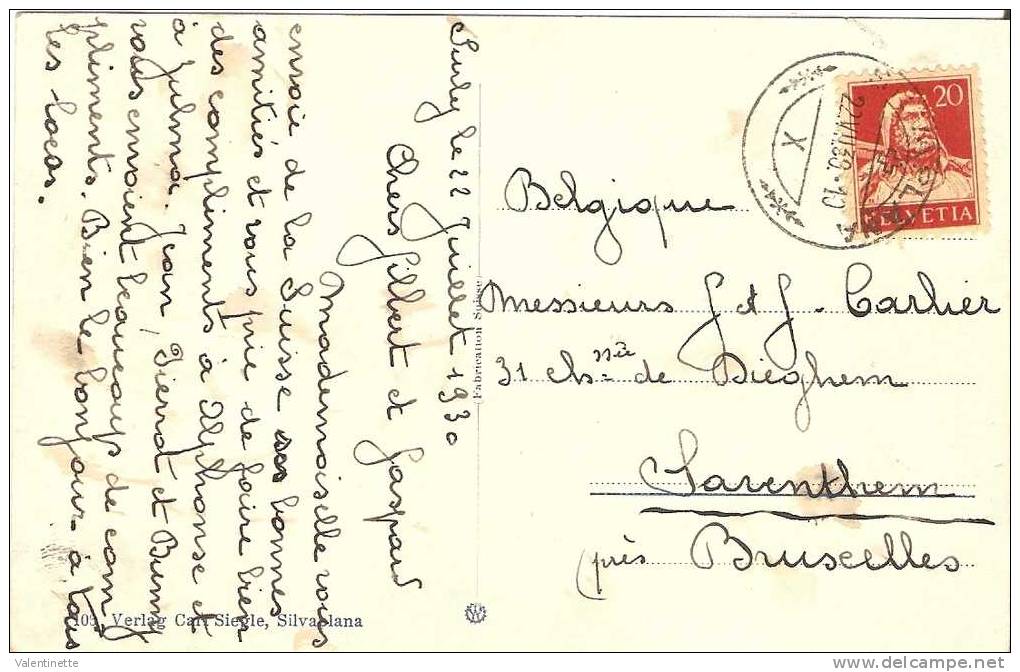 le 22 Juillet 1930
Chers Gilbert et Gaspard
Mademoiselle vous
envoie de la Suisse ses bonnes
amitiés et vous prie de faire bien
des compliments à Alphonse et
à Zulma. Jean, Pierrot et Bunny
vous envoient beaucoup de com
pliments. Bien le bonjour à tous
les locos.
Fabrication Suisse
105 Verlag Carl Siegle, Silvaplana
20
HELVETIA
22.VII.30.
X
Belgique
Messieurs G et G. Carlier
31 chs. née de Dieghem
Saventhem
près Bruxelles
Valentinette
delcampe.net